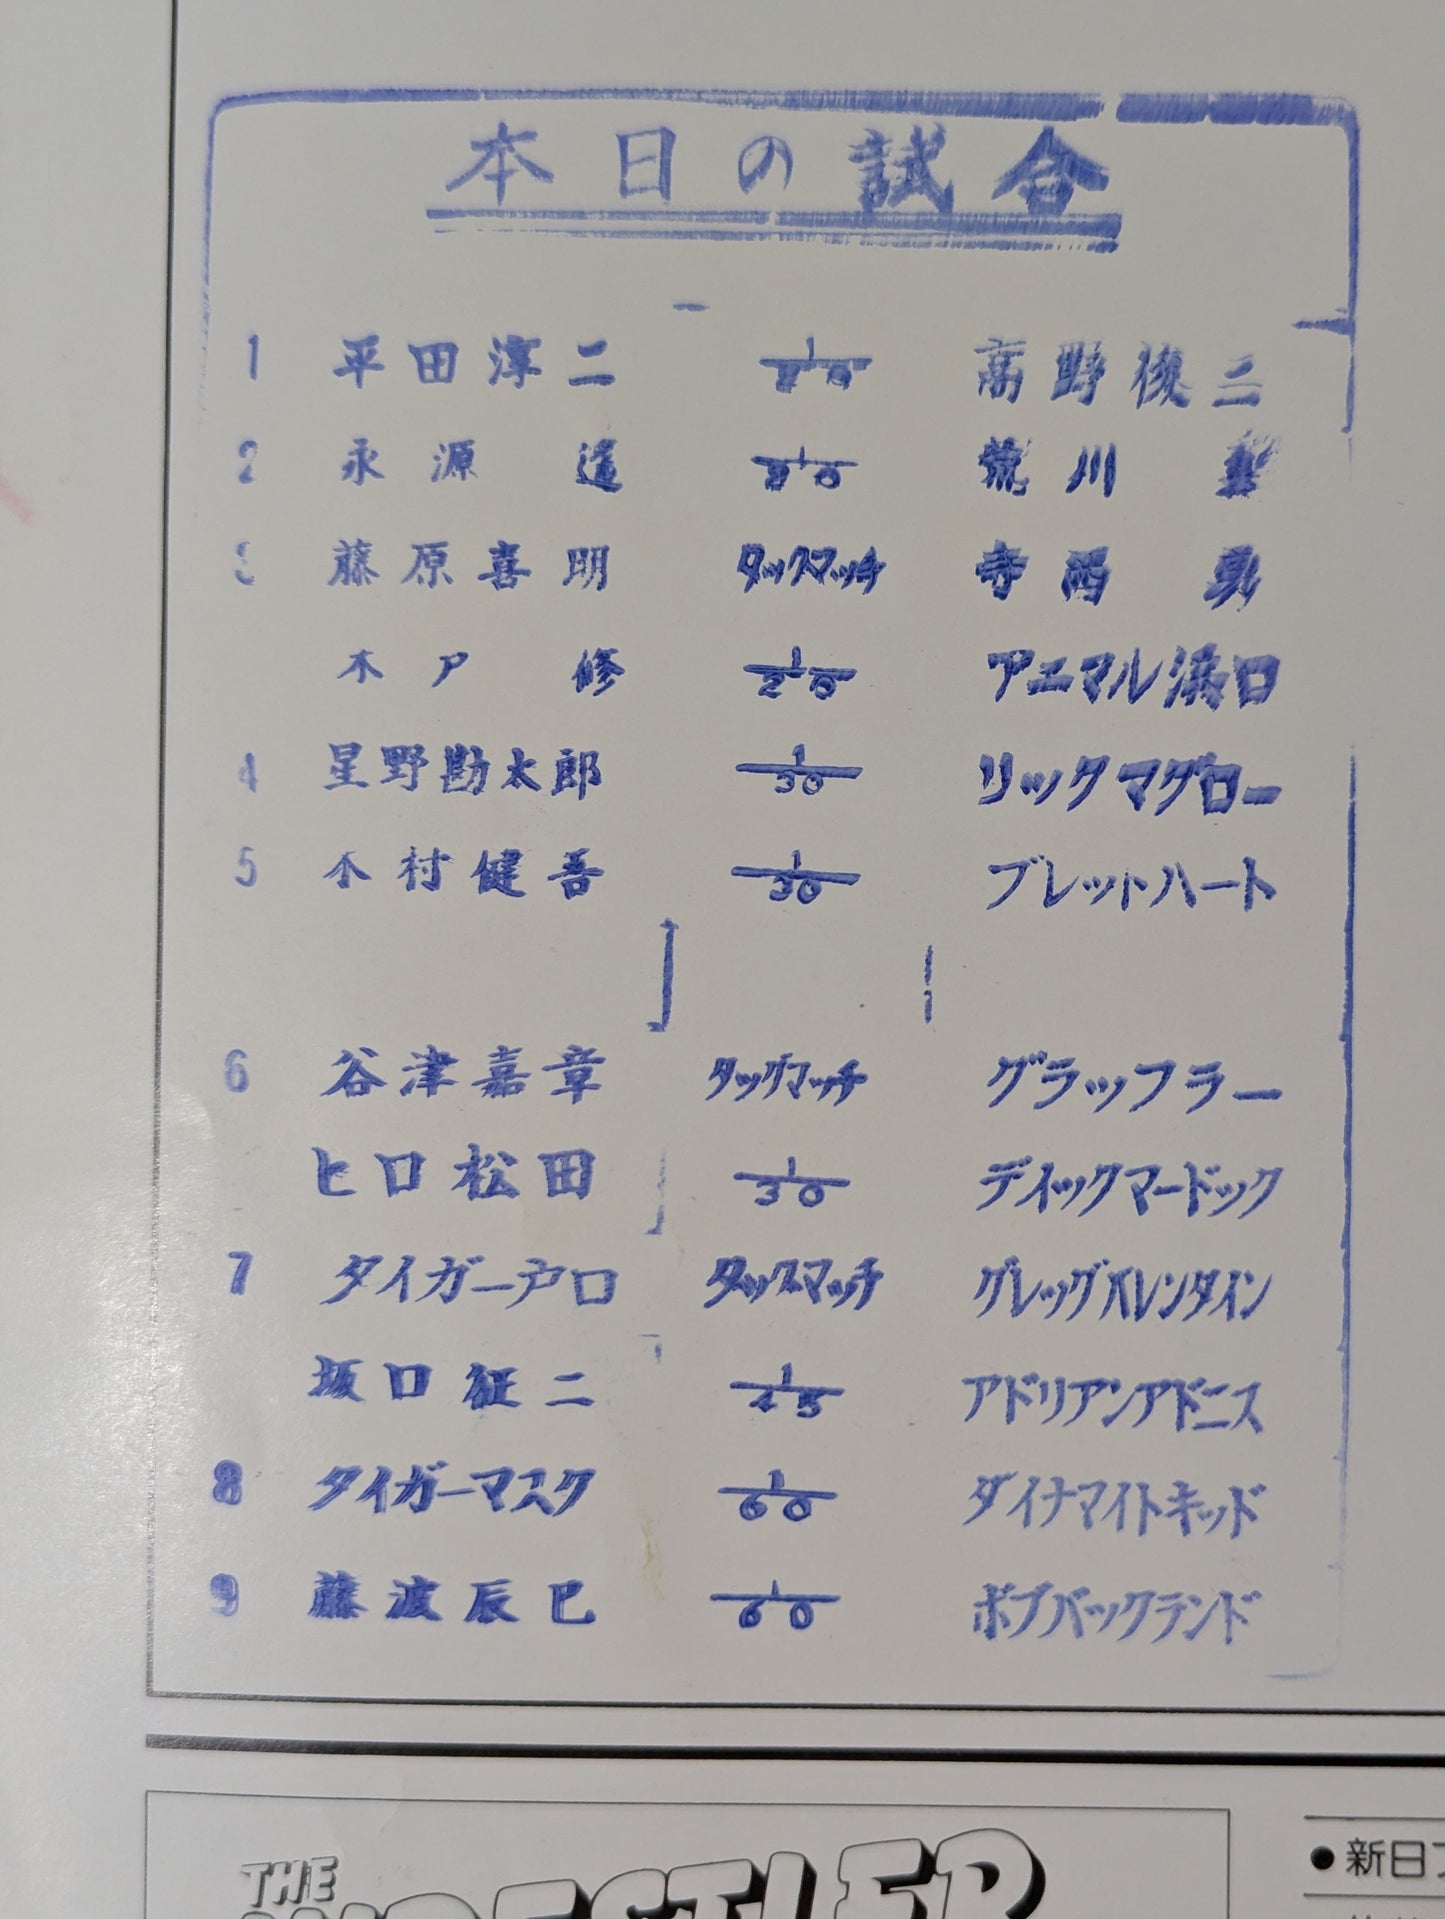 本日の試合
1 平田淳二 1/20 高野俊二
2 永源遥 1/20 荒川真
3 藤原喜明 タッグマッチ 寺西勇
木戸修 1/20 アニマル浜口
4 星野勘太郎 1/30 リックマグロー
5 木村健吾 1/30 ブレットハート
6 谷津嘉章 タッグマッチ グラップラー
ヒロ松田 1/30 ディックマードック
7 タイガー戸口 タッグマッチ グレッグバレンタイン
坂口征二 1/45 アドリアンアドニス
8 タイガーマスク 1/60 ダイナマイトキッド
9 藤波辰巳 1/60 ボブバックランド
THE
WRESTLER
●新日